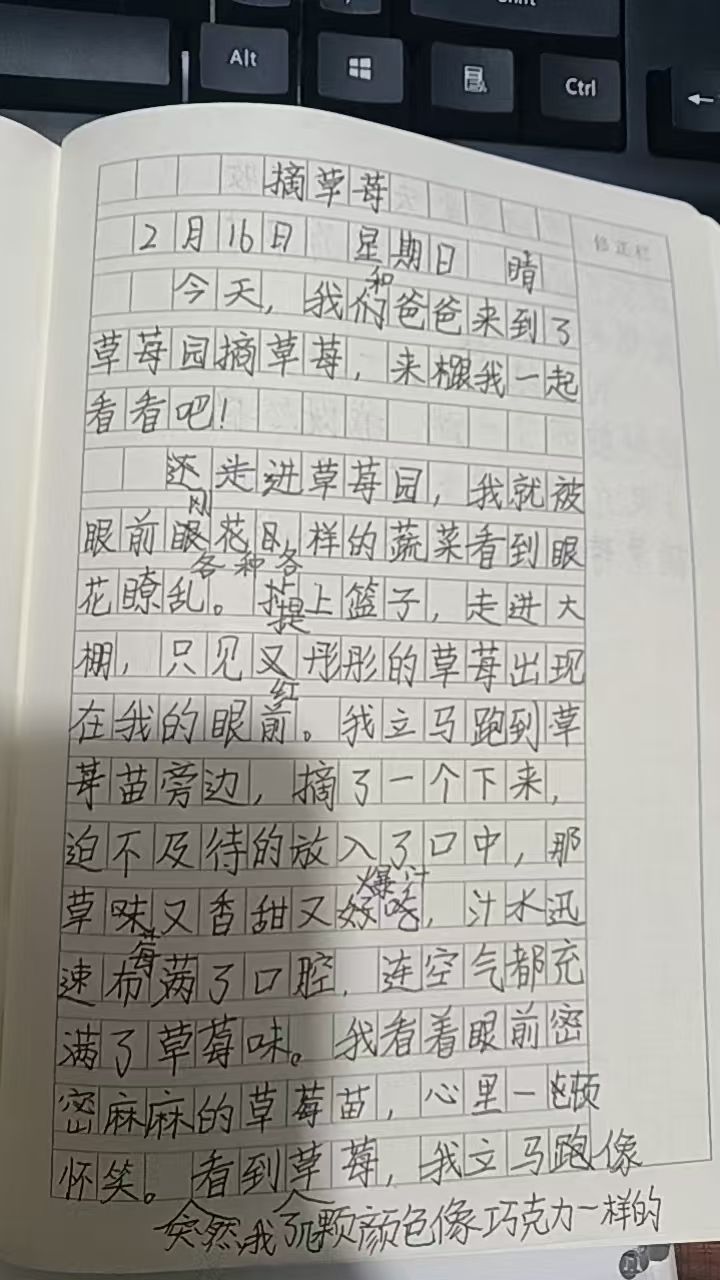 Alt
Ctrl
摘草莓
2月16日 星期日 晴
和
今天，我们爸爸来到了
草莓园摘草莓，来跟我一起
看看吧！
还走进草莓园，我就被
刚
眼前眼花日，样的蔬菜看到眼
各种各
花瞭乱。上篮子，走进大
提
棚，只见又彤彤的草莓出现
红
在我的眼前。我立马跑到草
莓苗旁边，摘了一个下来，
迫不及待的放入了口中，那
爆汁
草味又香甜又好吃，汁水迅
莓
速布满了口腔，连空气都充
满了草莓味。我看着眼前密
密麻麻的草莓苗，心里一顿
怀笑。看到草莓，我立马跑像
突然，我颗颜色像巧克力一样的